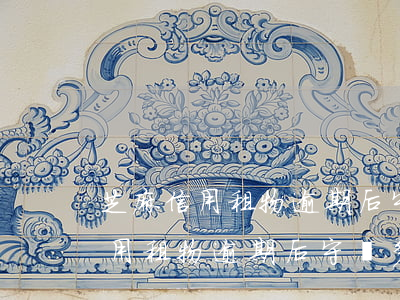 芝麻信用租物逾期后
用租物逾期后守